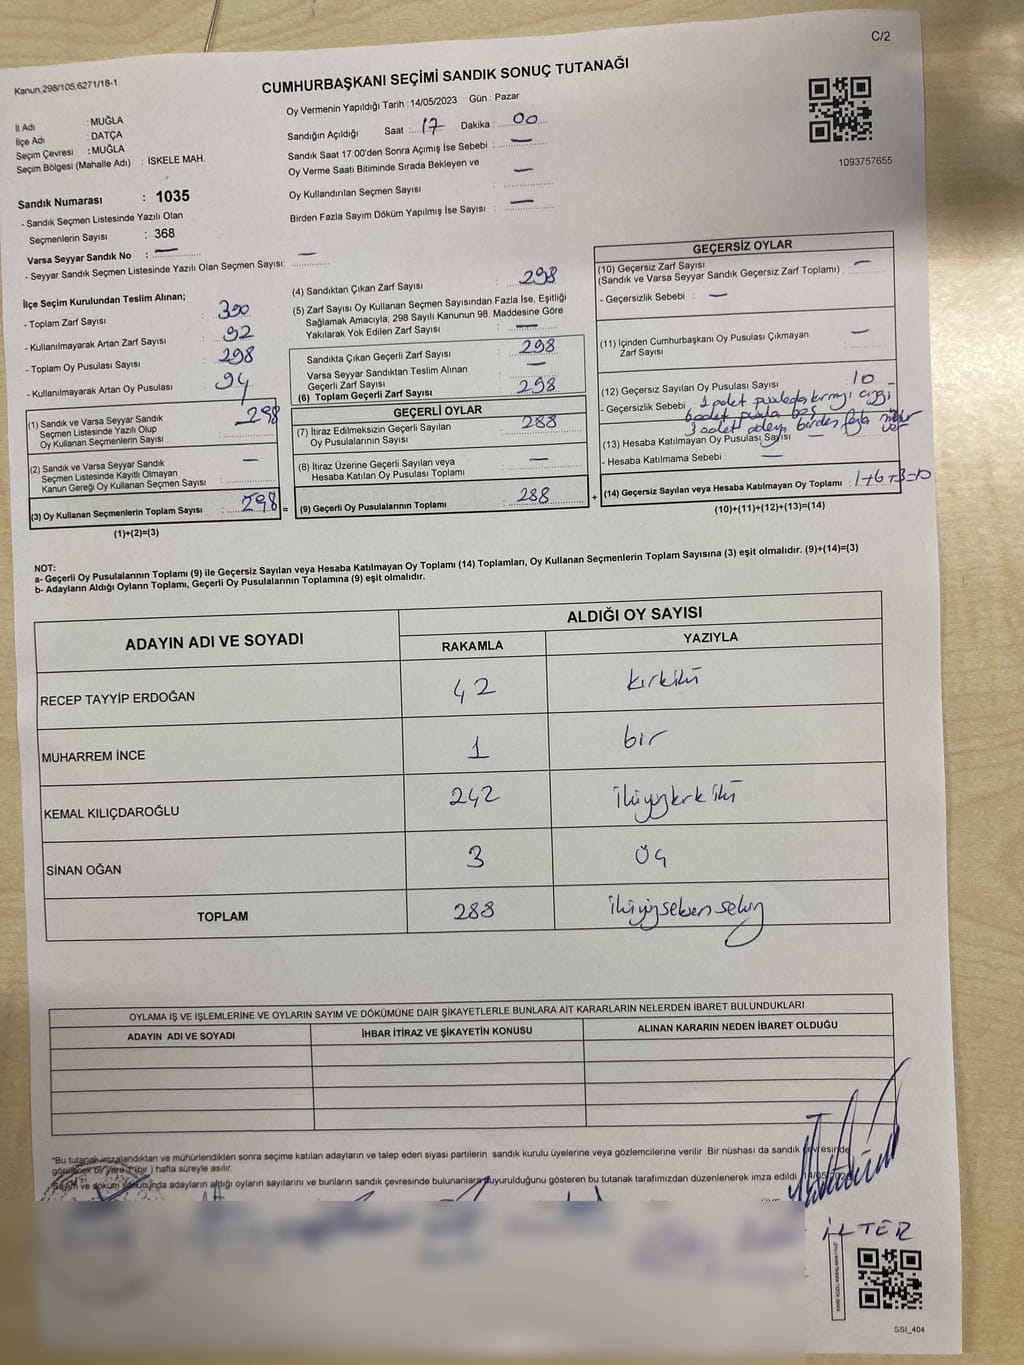 C/2
Kanun:298/105,6271/18-1
CUMHURBAŞKANI SEÇİMİ SANDIK SONUÇ TUTANAĞI
Oy Vermenin Yapıldığı Tarih :14/05/2023 Gün : Pazar
İl Adı : MUĞLA
İlçe Adı : DATÇA
Seçim Çevresi : MUĞLA
Seçim Bölgesi (Mahalle Adı) : İSKELE MAH.
Sandığın Açıldığı Saat : 17 Dakika : 00
Sandık Saat 17:00'den Sonra Açımış İse Sebebi : —
Oy Verme Saati Bitiminde Sırada Bekleyen ve
Oy Kullandırılan Seçmen Sayısı : —
Birden Fazla Sayım Döküm Yapılmış İse Sayısı : —
1093757655
Sandık Numarası : 1035
- Sandık Seçmen Listesinde Yazılı Olan
Seçmenlerin Sayısı : 368
Varsa Seyyar Sandık No : —
- Seyyar Sandık Seçmen Listesinde Yazılı Olan Seçmen Sayısı: —
İlçe Seçim Kurulundan Teslim Alınan;
- Toplam Zarf Sayısı : 390
- Kullanılmayarak Artan Zarf Sayısı : 92
- Toplam Oy Pusulası Sayısı : 298
- Kullanılmayarak Artan Oy Pusulası : 94
(1) Sandık ve Varsa Seyyar Sandık
Seçmen Listesinde Yazılı Olup
Oy Kullanan Seçmenlerin Sayısı : 298
(2) Sandık ve Varsa Seyyar Sandık
Seçmen Listesinde Kayıtlı Olmayan
Kanun Gereği Oy Kullanan Seçmen Sayısı : —
(3) Oy Kullanan Seçmenlerin Toplam Sayısı : 298 =
(1)+(2)=(3)
(4) Sandıktan Çıkan Zarf Sayısı : 298
(5) Zarf Sayısı Oy Kullanan Seçmen Sayısından Fazla İse, Eşitliği
Sağlamak Amacıyla; 298 Sayılı Kanunun 98. Maddesine Göre
Yakılarak Yok Edilen Zarf Sayısı : —
Sandıkta Çıkan Geçerli Zarf Sayısı : 298
Varsa Seyyar Sandıktan Teslim Alınan
Geçerli Zarf Sayısı : —
(6) Toplam Geçerli Zarf Sayısı : 298
GEÇERLİ OYLAR
(7) İtiraz Edilmeksizin Geçerli Sayılan
Oy Pusulalarının Sayısı : 288
(8) İtiraz Üzerine Geçerli Sayılan veya
Hesaba Katılan Oy Pusulası Toplamı : —
(9) Geçerli Oy Pusulalarının Toplamı : 288 +
GEÇERSİZ OYLAR
(10) Geçersiz Zarf Sayısı
(Sandık ve Varsa Seyyar Sandık Geçersiz Zarf Toplamı) : —
- Geçersizlik Sebebi : —
(11) İçinden Cumhurbaşkanı Oy Pusulası Çıkmayan
Zarf Sayısı : —
(12) Geçersiz Sayılan Oy Pusulası Sayısı : 10
- Geçersizlik Sebebi : 1 adet pusulada kırmızı çizgi
6 adet pusula boş
3 adet adaya birden fazla mühür
(13) Hesaba Katılmayan Oy Pusulası Sayısı : —
- Hesaba Katılmama Sebebi : —
(14) Geçersiz Sayılan veya Hesaba Katılmayan Oy Toplamı : 1+6+3=10
(10)+(11)+(12)+(13)=(14)
NOT:
a- Geçerli Oy Pusulalarının Toplamı (9) ile Geçersiz Sayılan veya Hesaba Katılmayan Oy Toplamı (14) Toplamları, Oy Kullanan Seçmenlerin Toplam Sayısına (3) eşit olmalıdır. (9)+(14)=(3)
b- Adayların Aldığı Oyların Toplamı, Geçerli Oy Pusulalarının Toplamına (9) eşit olmalıdır.
ADAYIN ADI VE SOYADI ALDIĞI OY SAYISI
RAKAMLA YAZIYLA
RECEP TAYYİP ERDOĞAN 42 kırkiki
MUHARREM İNCE 1 bir
KEMAL KILIÇDAROĞLU 242 ikiyüzkırkiki
SİNAN OĞAN 3 üç
TOPLAM 288 ikiyüzseksensekiz
OYLAMA İŞ VE İŞLEMLERİNE VE OYLARIN SAYIM VE DÖKÜMÜNE DAİR ŞİKAYETLERLE BUNLARA AİT KARARLARIN NELERDEN İBARET BULUNDUKLARI
ADAYIN ADI VE SOYADI İHBAR İTİRAZ VE ŞİKAYETİN KONUSU ALINAN KARARIN NEDEN İBARET OLDUĞU
*Bu tutanak imzalandıktan ve mühürlendikten sonra seçime katılan adayların ve talep eden siyasi partilerin sandık kurulu üyelerine veya gözlemcilerine verilir .Bir nüshası da sandık çevresinde
görülecek bir yere 1 (bir ) hafta süreyle asılır.
Sayım ve döküm sonucunda adayların aldığı oyların sayılarını ve bunların sandık çevresinde bulunanlara duyurulduğunu gösteren bu tutanak tarafımızdan düzenlenerek imza edildi.
İLTER
SSI_404